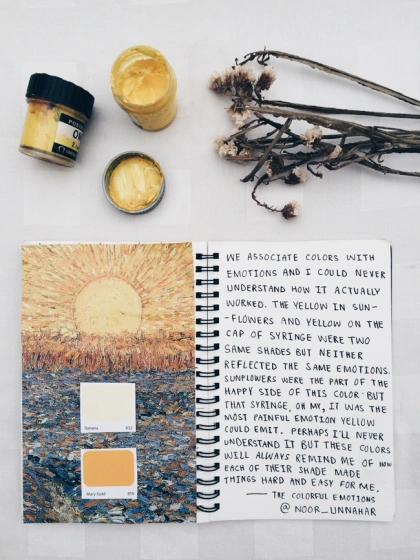 WE ASSOCIATE COLORS WITH
EMOTIONS AND I COULD NEVER
UNDERSTAND HOW IT ACTUALLY
WORKED. THE YELLOW IN SUN-
-FLOWERS AND YELLOW ON THE
CAP OF SYRINGE WERE TWO
SAME SHADES BUT NEITHER
REFLECTED THE SAME EMOTIONS.
SUNFLOWERS WERE THE PART OF THE
HAPPY SIDE OF THIS COLOR BUT
THAT SYRINGE, OH MY, IT WAS THE
MOST PAINFUL EMOTION YELLOW
COULD EMIT. PERHAPS I'LL NEVER
UNDERSTAND IT BUT THESE COLORS
WILL ALWAYS REMIND ME OF HOW
EACH OF THEIR SHADE MADE
THINGS HARD AND EASY FOR ME.
— THE COLORFUL EMOTIONS
@ NOOR_UNNAHAR
Banana
Mary Gold